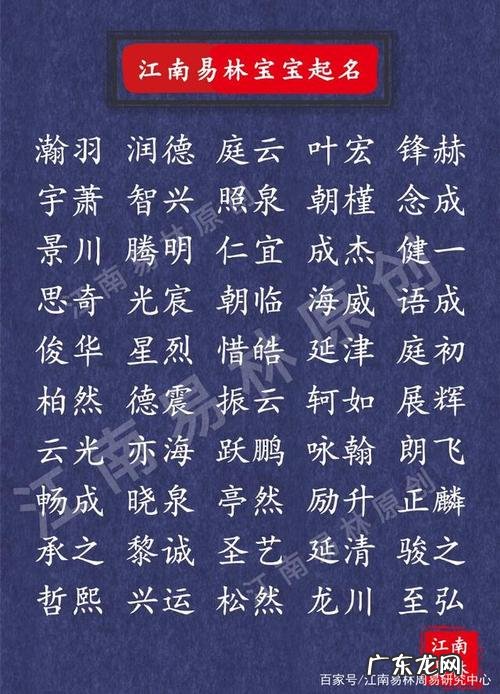 江南易林宝宝起名
瀚羽 润德 庭云 叶宏 锋赫
宇萧 智兴 照泉 朝槿 念成
景川 腾明 仁宜 成杰 健一
思奇 光宸 朝临 海威 语成
俊华 星烈 惜皓 延津 庭初
柏然 德震 振云 轲如 展辉
云光 亦海 跃鹏 咏翰 朗飞
畅成 晓泉 亭然 励升 正麟
承之 黎诚 圣艺 延清 骏之
哲熙 兴运 松然 龙川 至弘
江南易林原创
江南易林原创
江南易林原创
江南
百家号/江南易林周易研究中心
广东龙网